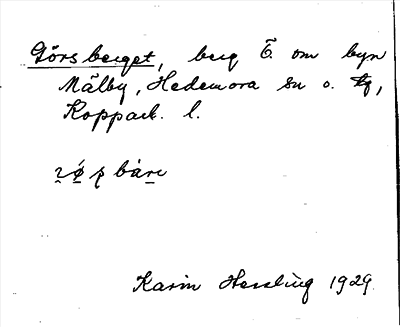 Görsberget, berg Ö. om byn
Mälby, Hedemora sn o. tg,
Kopparb. l.
bàre
Karin Hessling 1929